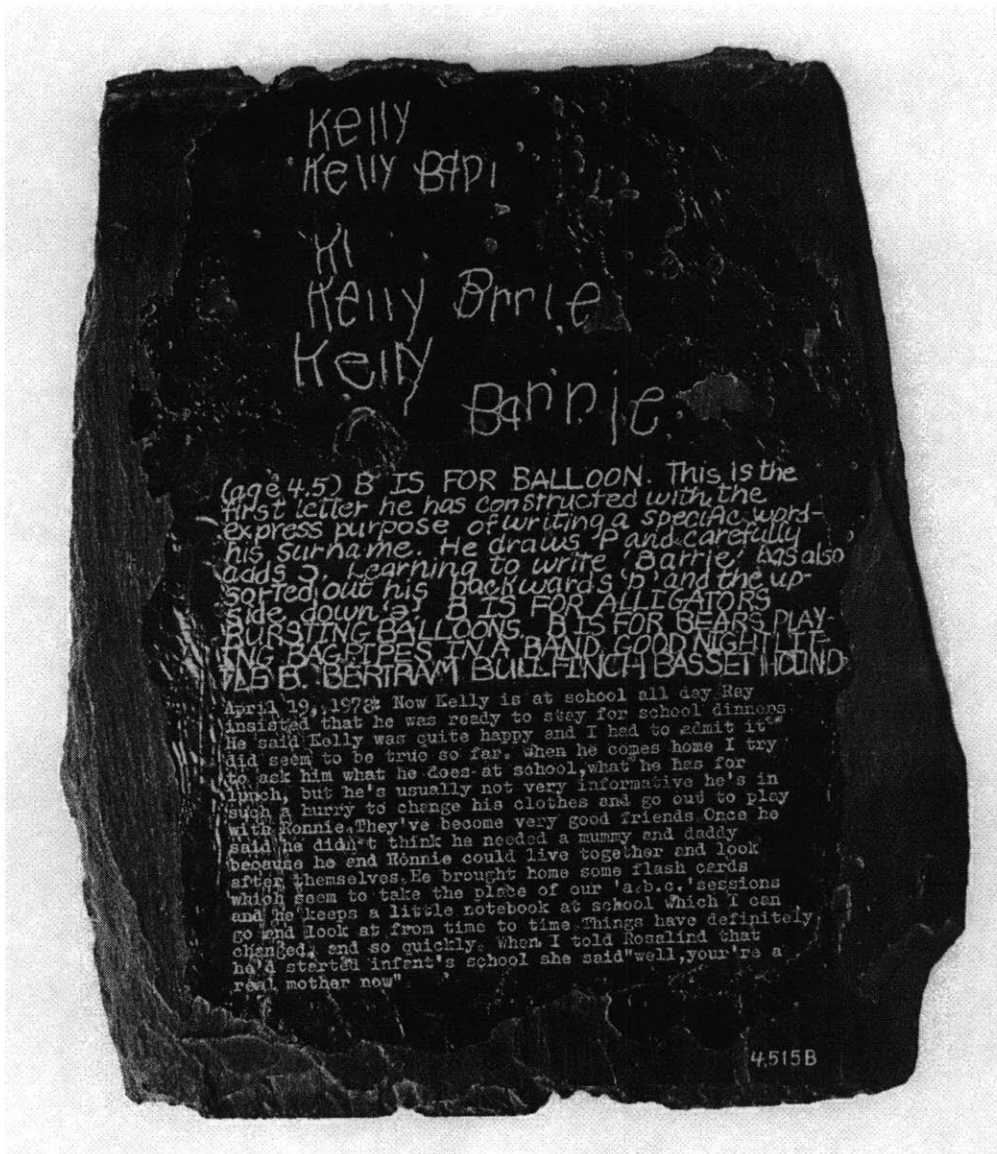 Kelly
Kelly BapI
KI
Kelly Brrie
Kelly
Barrie
(age 4.5) B IS FOR BALLOON. This is the
first letter he has constructed with the
express purpose of writing a specific word-
his surname. He draws 'P' and carefully
adds ɔ. Learning to write 'Barrie' has also
sorted out his backwards 'p' and the up-
side down 'a'. B IS FOR ALLIGATORS
BURSTING BALLOONS. B IS FOR BEARS PLAY-
ING BAGPIPES IN A BAND. GOOD NIGHT LIT-
TLE B. BERTRAM BULLFINCH BASSET HOUND
April 19, 1978: Now Kelly is at school all day. Ray
insisted that he was ready to stay for school dinners.
He said Kelly was quite happy and I had to admit it
did seem to be true so far. When he comes home I try
to ask him what he does at school, what he has for
lunch, but he's usually not very informative he's in
such a hurry to change his clothes and go oud to play
with Ronnie. They've become very good friends. Once he
said he didn't think he needed a mummy and daddy
because he and Ronnie could live together and look
after themselves. He brought home some flash cards
which seem to take the place of our 'a.b.c.' sessions
and he keeps a little notebook at school which I can
go and look at from time to time. Things have definitely
changed, and so quickly. When I told Rosalind that
he'd started infant's school she said "well, your're a
real mother now".
4.515B